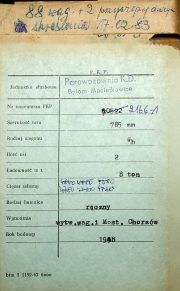 88 wag. + 2
skreślenia 17.02.83
P.K.P.
Jednostka służbowa Parowozownia K.D. Bytom Maciejkowice
Nr inwentarza PKP 21664
Szerokość toru 785 mm
Rodzaj wagonu Wh
Ilość osi 2
Ładowność w t 8 ton
Ciężar własny
Rodzaj hamulca ręczny
Wytwórnia wytw.wag.i Most. Chorzów
Rok budowy